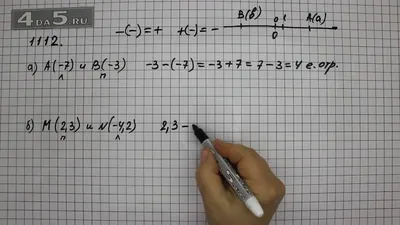 4DA5.RU
1112. -(-)=+ +(-)= -
B(в) 0 1 A(a)
0
а) A(-7) и B(-3) -3-(-7)=-3+7=7-3=4 е.отр.
л п
б) M(2,3) и N(-4,2) 2,3-
п л